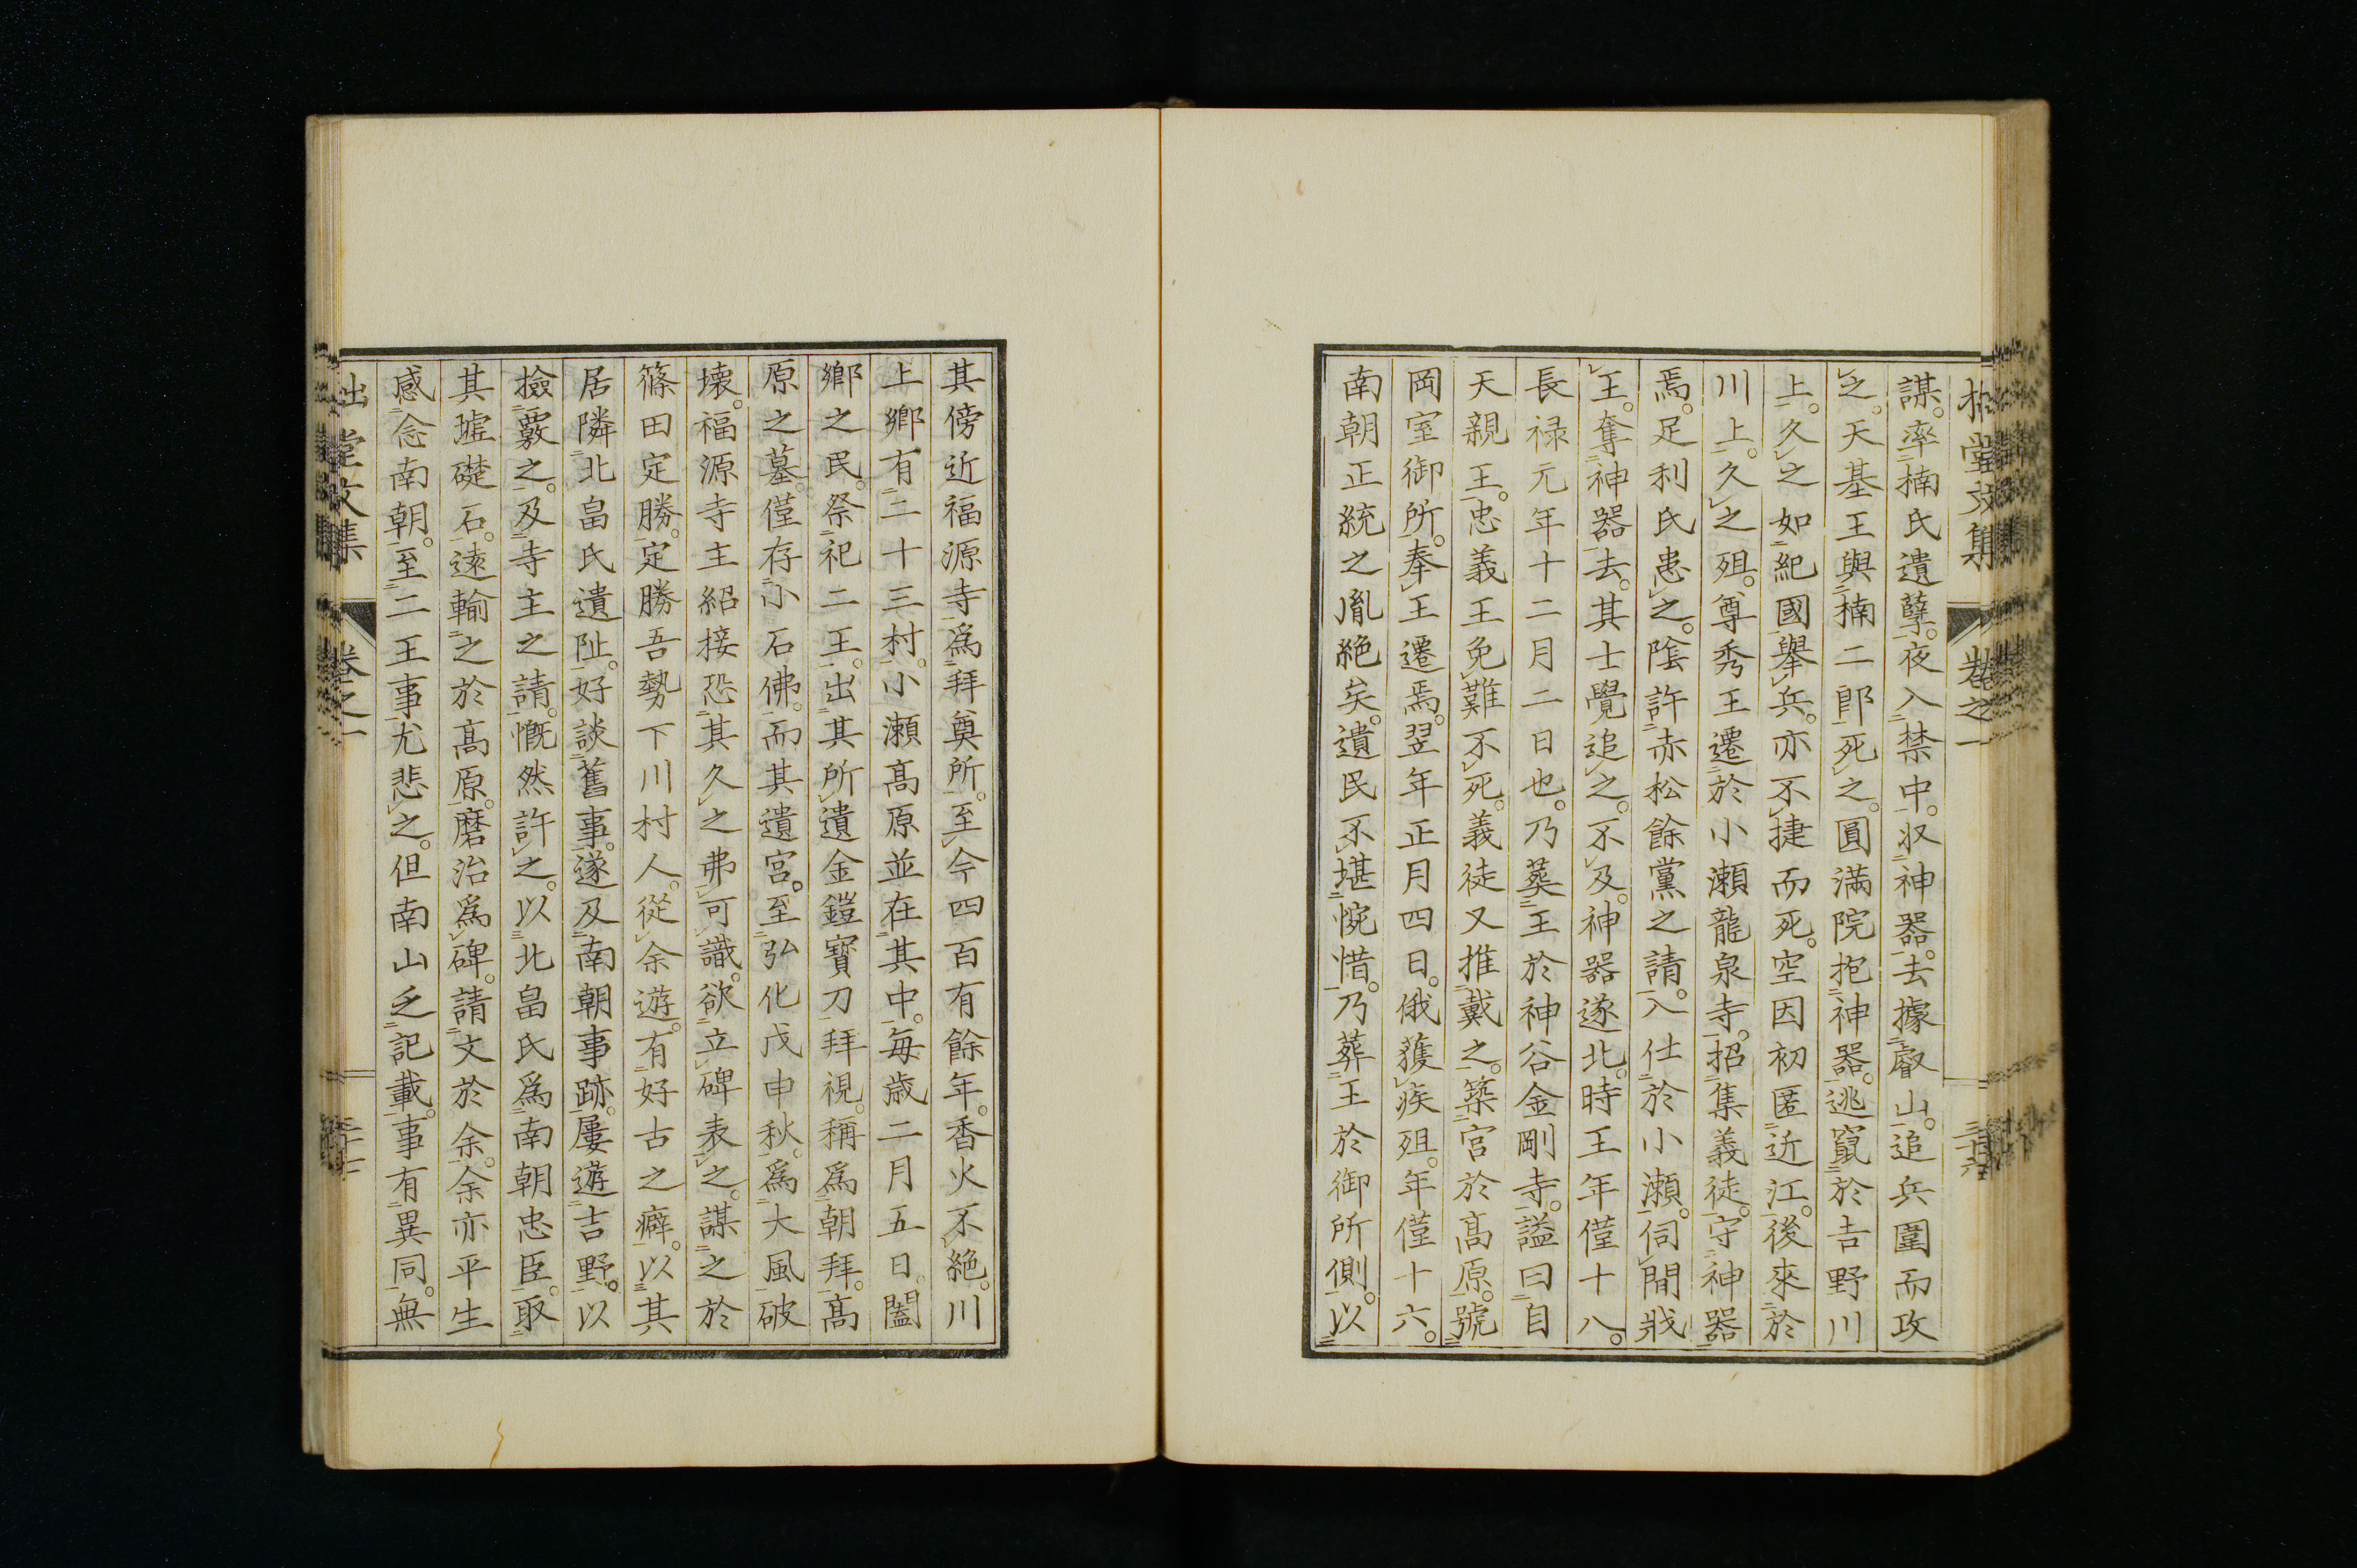 拙堂文集 卷之一 三十六
謀。率楠氏遺孽。夜入禁中。収神器。去據叡山。追兵圍而攻
之。天基王與楠二郎死之。圓満院抱神器。逃竄於吉野川
上。久之如紀國舉兵。亦不捷而死。空因初匿近江。後來於
川上。久之殂。尊秀王遷於小瀬龍泉寺。招集義徒。守神器
焉。足利氏患之。陰許赤松餘黨之請。入仕於小瀬。伺閒戕
王。奪神器去。其士覺追之。不及。神器遂北。時王年僅十八。
長禄元年十二月二日也。乃葬王於神谷金剛寺。謚曰自
天親王。忠義王免難不死。義徒又推戴之。築宮於髙原。號
岡室御所。奉王遷焉。翌年正月四日。俄獲疾殂。年僅十六。
南朝正統之胤絶矣。遺民不堪惋惜。乃葬王於御所側。以
其傍近福源寺爲拜奠所。至今四百有餘年。香火不絶。川
上鄉有二十三村。小瀬髙原並在其中。毎歳二月五日。闔
鄉之民。祭祀二王。出其所遺金鎧寶刀拜視。稱爲朝拜。髙
原之墓。僅存小石佛。而其遺宮。至弘化戊申秋。爲大風破
壊。福源寺主紹接恐其久之弗可識。欲立碑表之。謀之於
篠田定勝。定勝吾勢下川村人。從余遊。有好古之癖。以其
居隣北畠氏遺阯。好談舊事。遂及南朝事跡。屢遊吉野。以
撿覈之。及寺主之請。慨然許之。以北畠氏爲南朝忠臣。取
其墟礎石。遠輸之於髙原。磨治爲碑。請文於余。余亦平生
感念南朝。至二王事尤悲之。但南山乏記載。事有異同。無
拙堂文集 卷之一